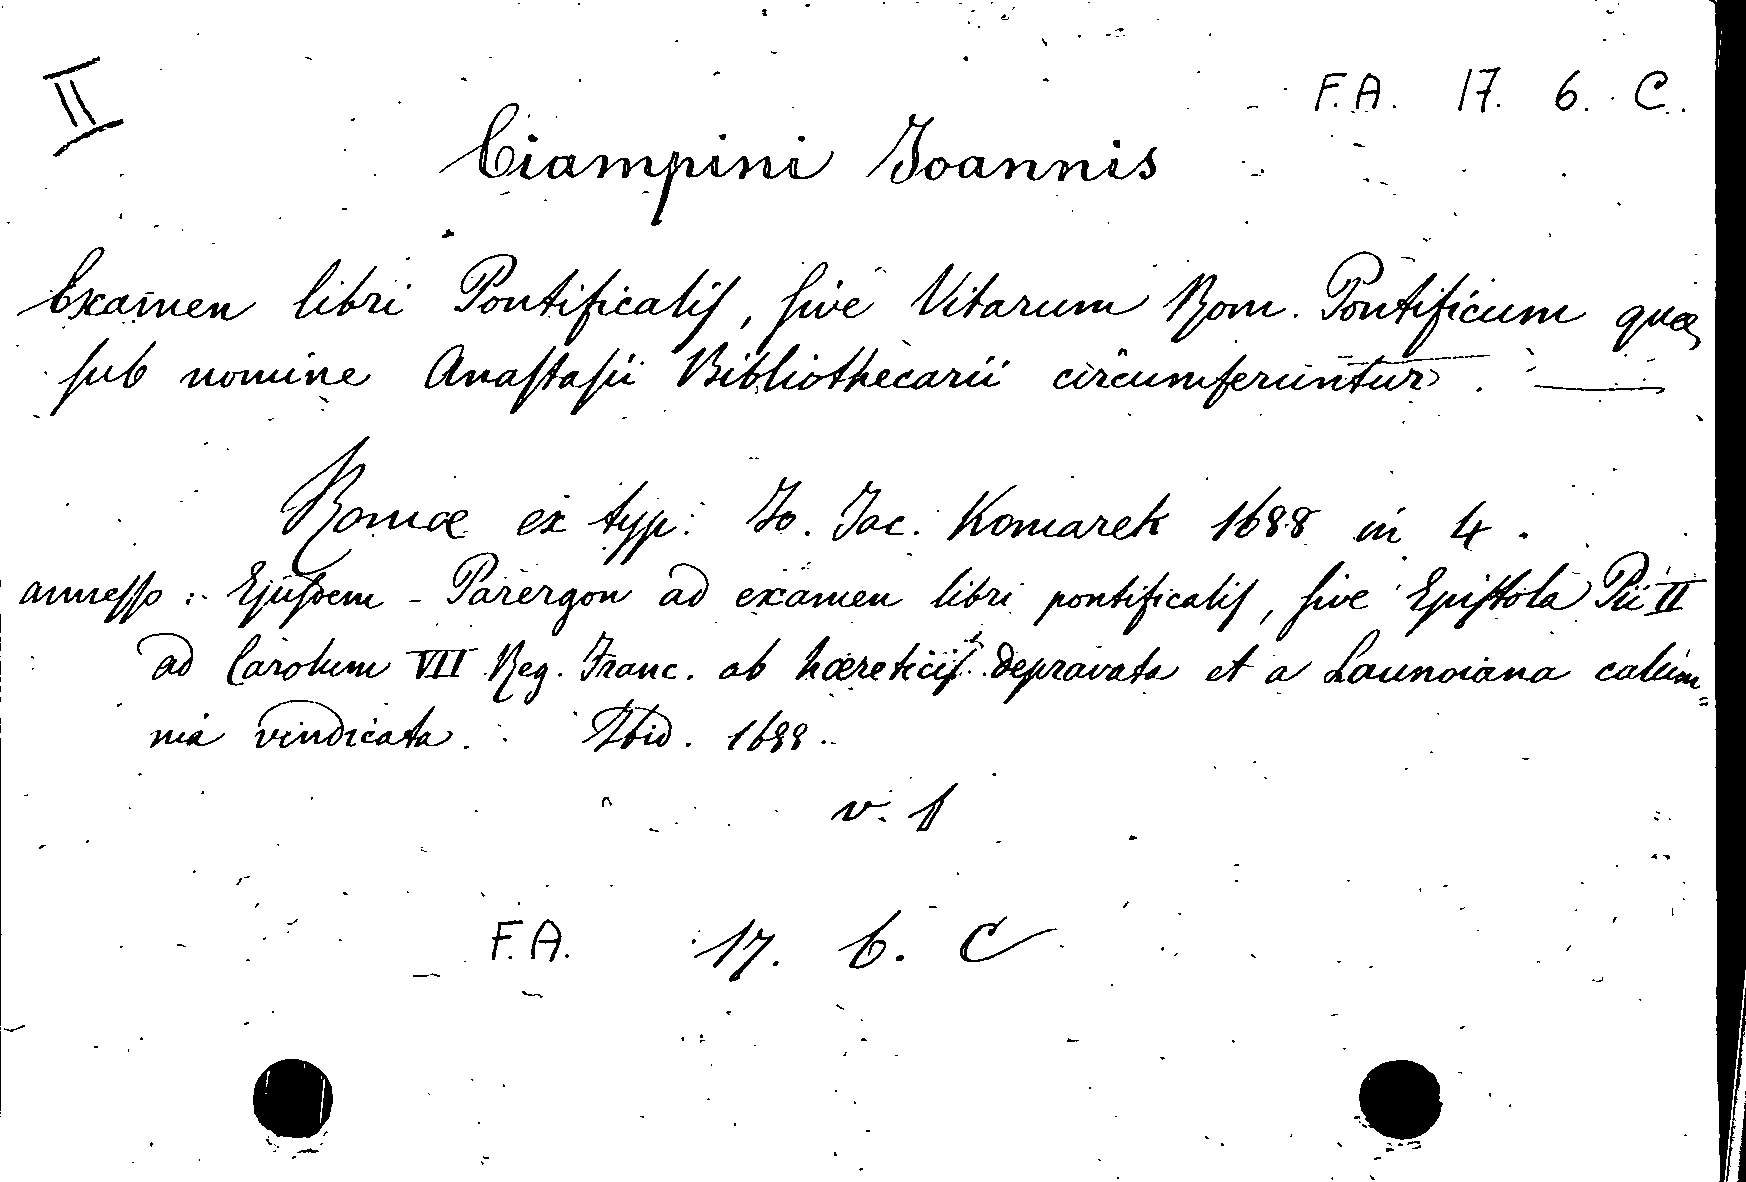 II
F.A. 17. 6. C.
Ciampini Joannis
Examen libri Pontificalis, sive Vitarum Rom. Pontificum quæ
sub nomine Anastasii Bibliothecarii circumferuntur. —
Romæ ex typ: Jo. Jac. Komarek 1688 in 4.
annesso: Ejusdem - Parergon ad examen libri pontificalis, sive Epistola Pii II
ad Carolum VII Reg. Franc. ab hæreticis depravata et a Launoiana calum=
nia vindicata. Ibid. 1688.
v. 1
F.A. 17. 6. C